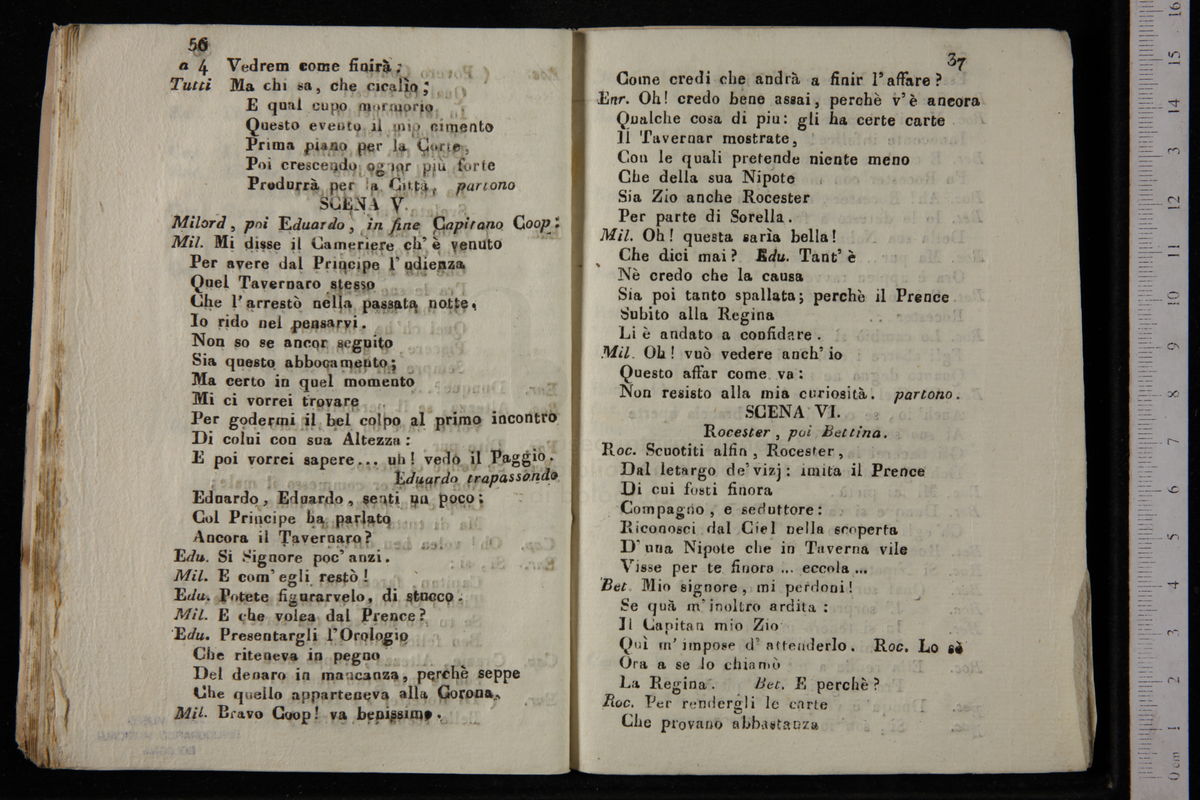 56
a 4 Vedrem come finirà;
Tutti Ma chi sa, che cicalìo;
E qual cupo mormorio
Questo evento il mio cimento
Prima piano per la Corte,
Poi crescendo ognor più forte
Produrrà per la Città, partono
SCENA V.
Milord, poi Eduardo, in fine Capitano Coop:
Mil. Mi disse il Cameriere ch' è venuto
Per avere dal Principe l' udienza
Quel Tavernaro stesso
Che l' arrestò nella passata notte,
Io rido nel pensarvi.
Non so se ancor seguito
Sia questo abboccamento;
Ma certo in quel momento
Mi ci vorrei trovare
Per godermi il bel colpo al primo incontro
Di colui con sua Altezza:
E poi vorrei sapere... uh! vedo il Paggio.
Eduardo trapassando
Eduardo, Eduardo, senti un poco;
Col Principe ha parlato
Ancora il Tavernaro?
Edu. Si Signore poc' anzi.
Mil. E com' egli restò!
Edu. Potete figurarvelo, di stucco.
Mil. E che volea dal Prence?
Edu. Presentargli l' Orologio
Che riteneva in pegno
Del denaro in mancanza, perchè seppe
Che quello apparteneva alla Corona,
Mil. Bravo Coop! va benissimo.
37
Come credi che andrà a finir l' affare?
Enr. Oh! credo bene assai, perchè v' è ancora
Qualche cosa di piu: gli ha certe carte
Il Tavernar mostrate,
Con le quali pretende niente meno
Che della sua Nipote
Sia Zio anche Rocester
Per parte di Sorella.
Mil. Oh! questa sarìa bella!
Che dici mai? Edu. Tant' è
Nè credo che la causa
Sia poi tanto spallata; perchè il Prence
Subito alla Regina
Li è andato a confidare.
Mil. Oh! vuò vedere anch' io
Questo affar come va:
Non resisto alla mia curiosità. partono.
SCENA VI.
Rocester, poi Bettina.
Roc. Scuotiti alfin, Rocester,
Dal letargo de' vizj: imita il Prence
Di cui fosti finora
Compagno, e seduttore:
Riconosci dal Ciel nella scoperta
D' una Nipote che in Taverna vile
Visse per te finora ... eccola ...
Bet. Mio signore, mi perdoni!
Se quà m' inoltro ardita:
Il Capitan mio Zio
Quì m' impose d' attenderlo. Roc. Lo sò
Ora a se lo chiamò
La Regina. Bet. E perchè?
Roc. Per rendergli le carte
Che provano abbastanza